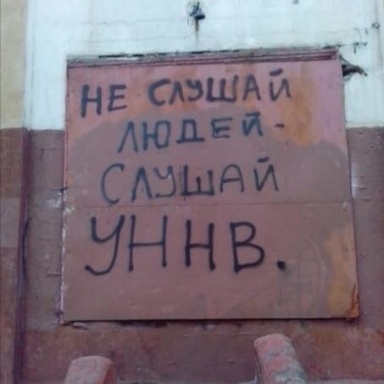 НЕ СЛУШАЙ
ЛЮДЕЙ-
СЛУШАЙ
УННВ.